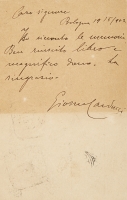 Caro signore
Bologna 19
Ho ricevuto le memorie
Ben riuscito libro e
magnifico dono. La
ringrazio.
Giosue Carducci